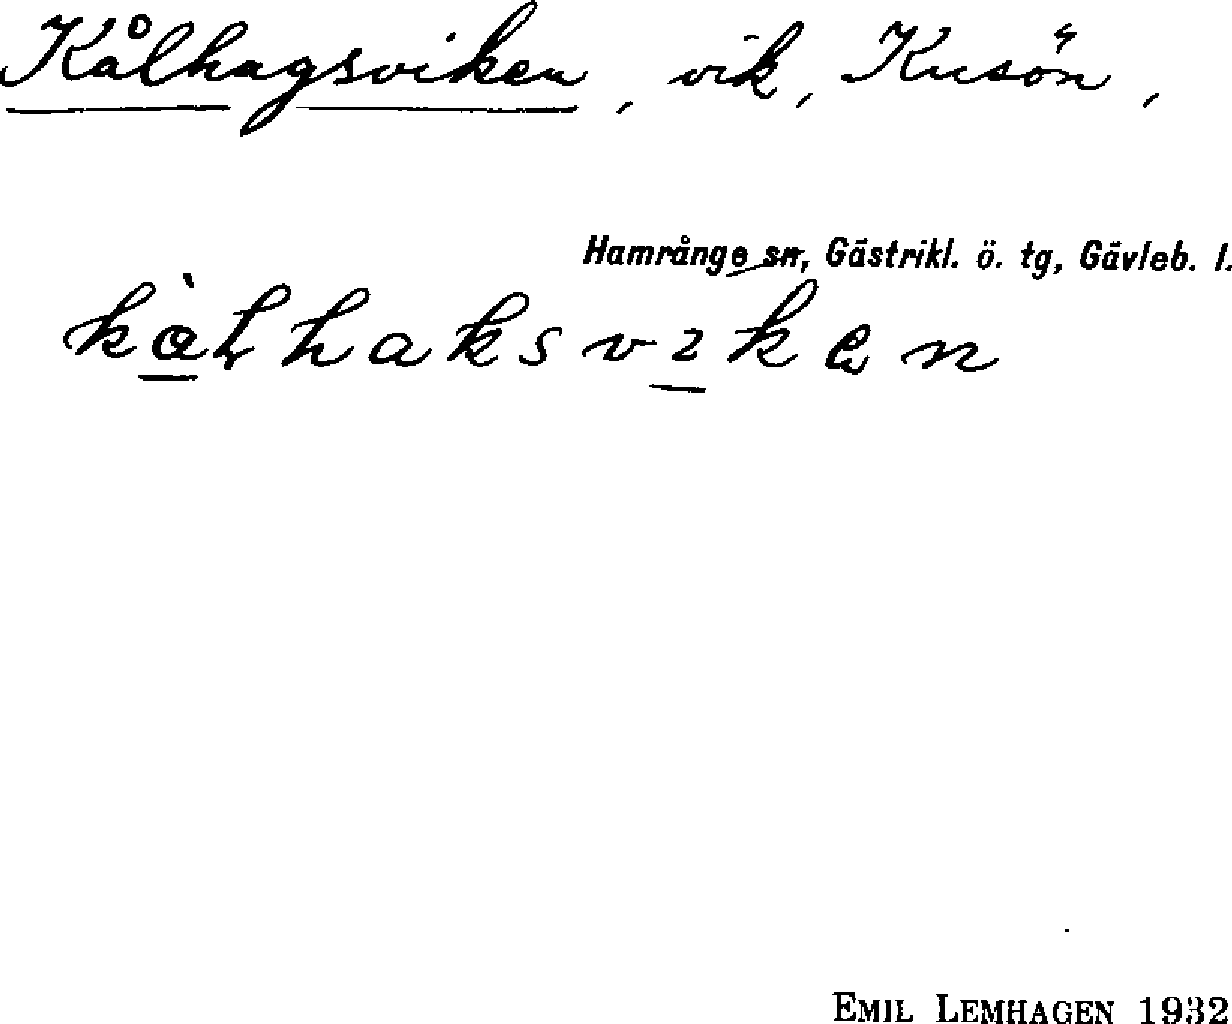 Kålhagsviken, vik, Kusön,
Hamrånge sn, Gästrikl. ö. tg, Gävleb. l.
kàlhaksvıken
EMIL LEMHAGEN 1932